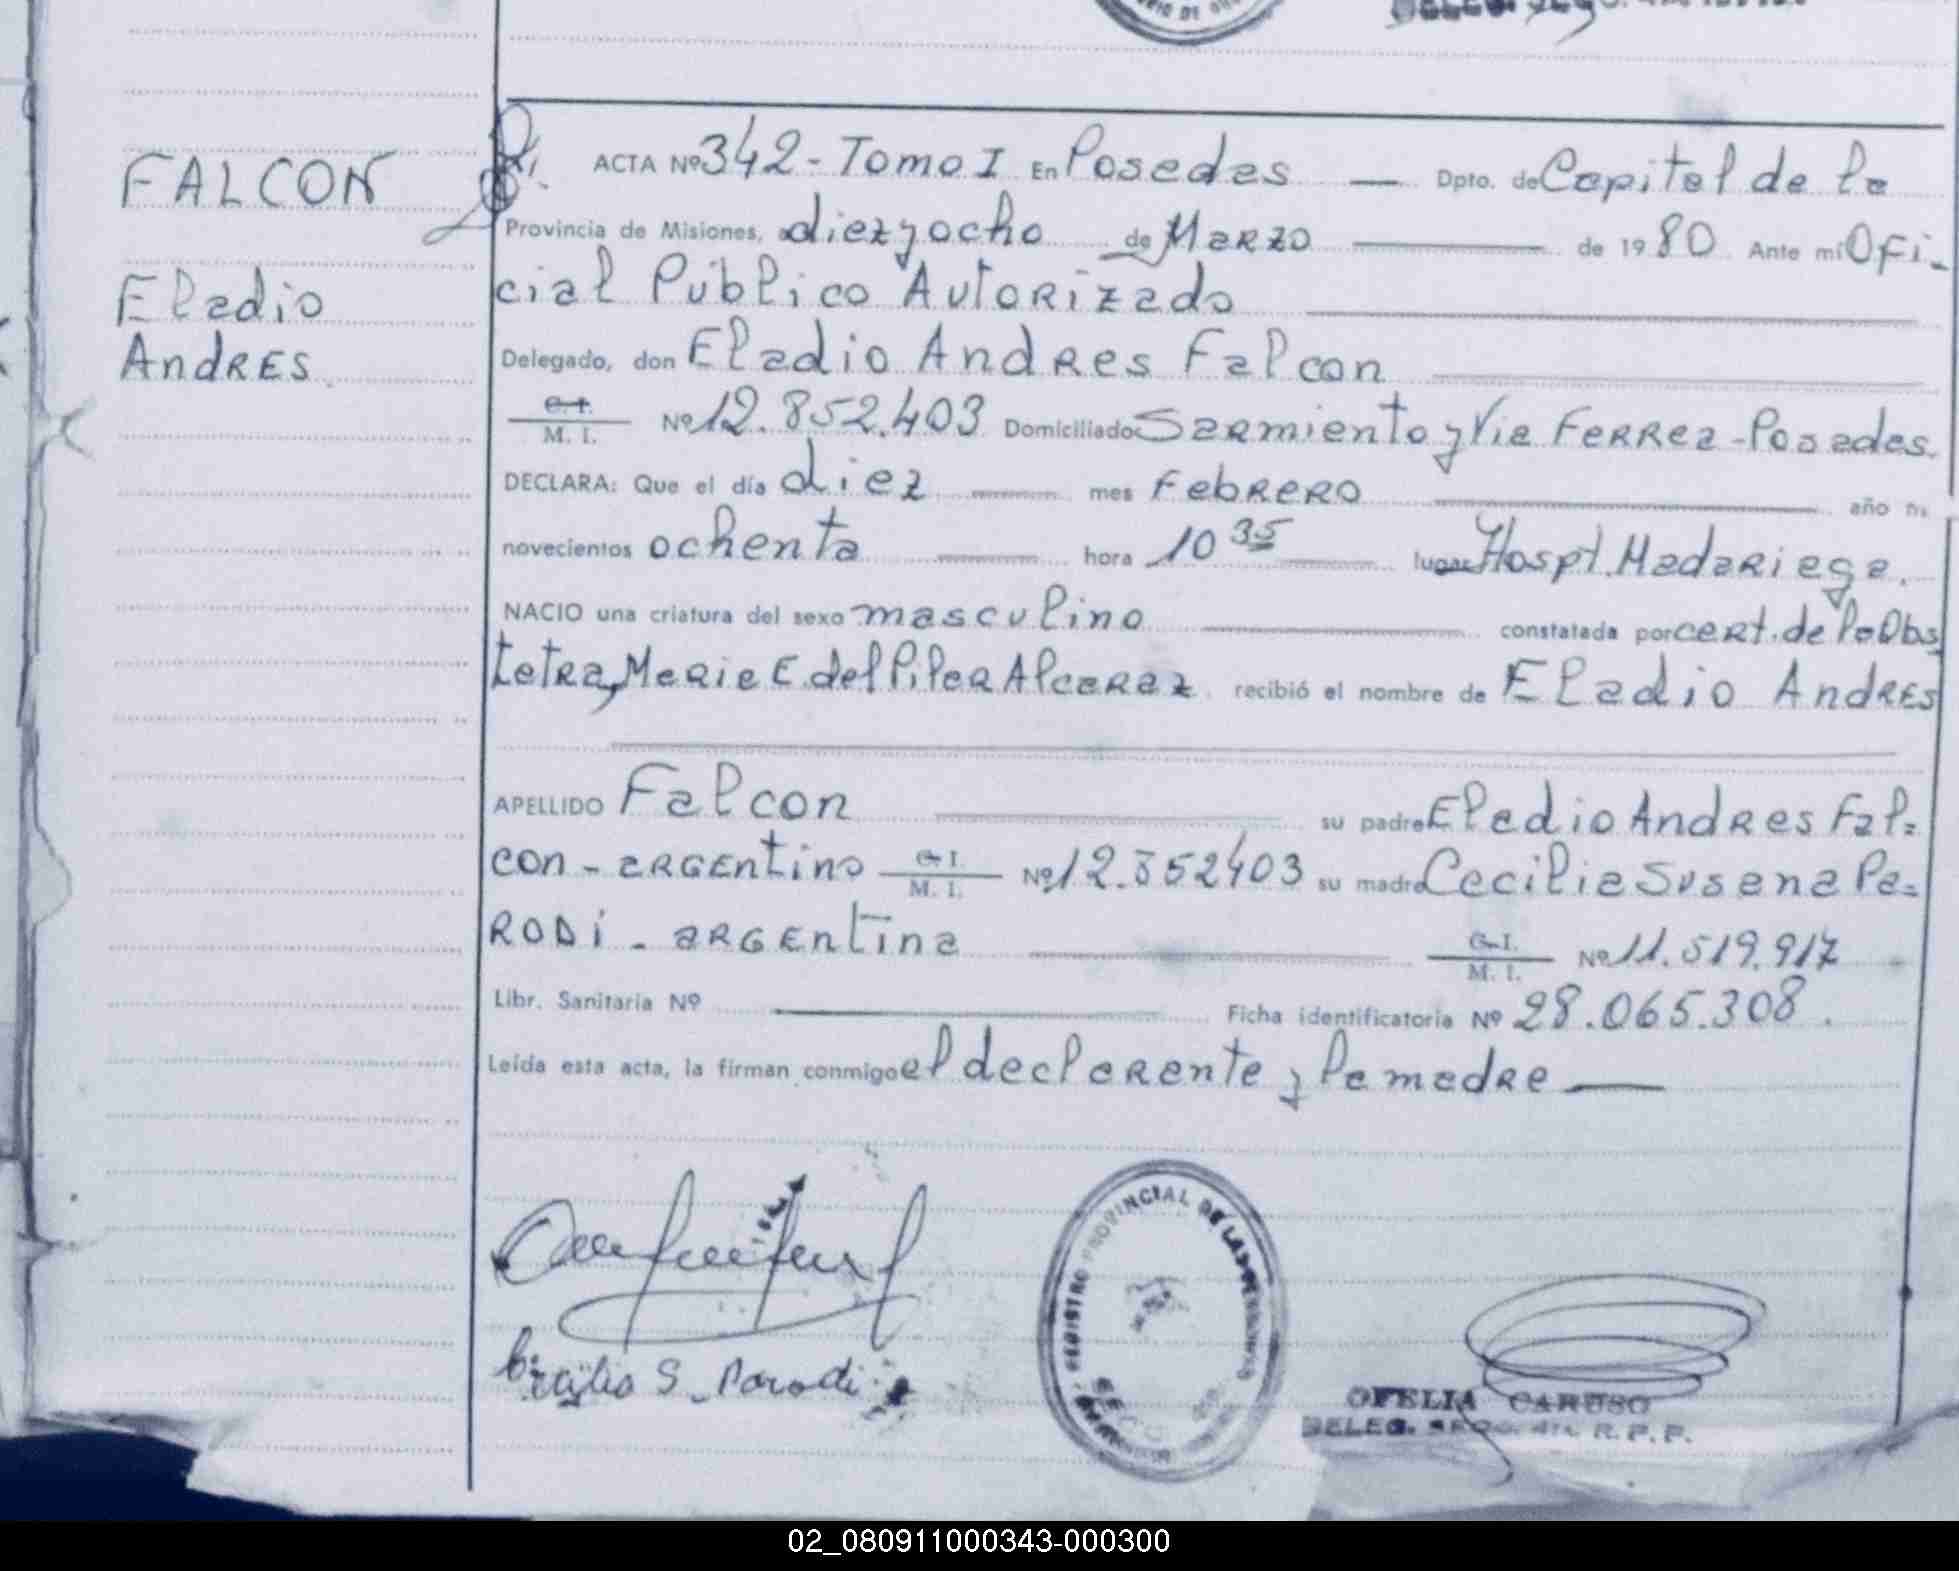 ACTA Nº 342 - Tomo I En Posadas — Dpto. de Capital de la
FALCON
Provincia de Misiones, a diez y ocho de Marzo de 1980. Ante mí Ofi-
Eladio
cial Público Autorizado
Andres.
Delegado, don Eladio Andres Falcon
C. I.
M. I. Nº 12.852.403 Domiciliado Sarmiento y Via Ferrea - Posadas.
DECLARA: Que el día diez mes Febrero año m
novecientos ochenta hora 10 35 lugar Hospt. Madariaga.
NACIO una criatura del sexo masculino constatada por cert. de la Obs
tetra, Maria E. del Pilar Alcaraz recibió el nombre de Eladio Andres
APELLIDO Falcon su padre Eladio Andres Fal=
con - argentino C. I. / M. I. Nº 12.852403 su madre Cecilia Susana Pa=
rodi - argentina C. I. / M. I. Nº 11.519.917
Libr. Sanitaria Nº Ficha identificatoria Nº 28.065.308.
Leída esta acta, la firman conmigo el declarante y la madre —
REGISTRO PROVINCIAL DE LAS PERSONAS
Cecilia S. Parodi
OFELIA CARUSO
DELEG. R.P.P.
02_080911000343-000300